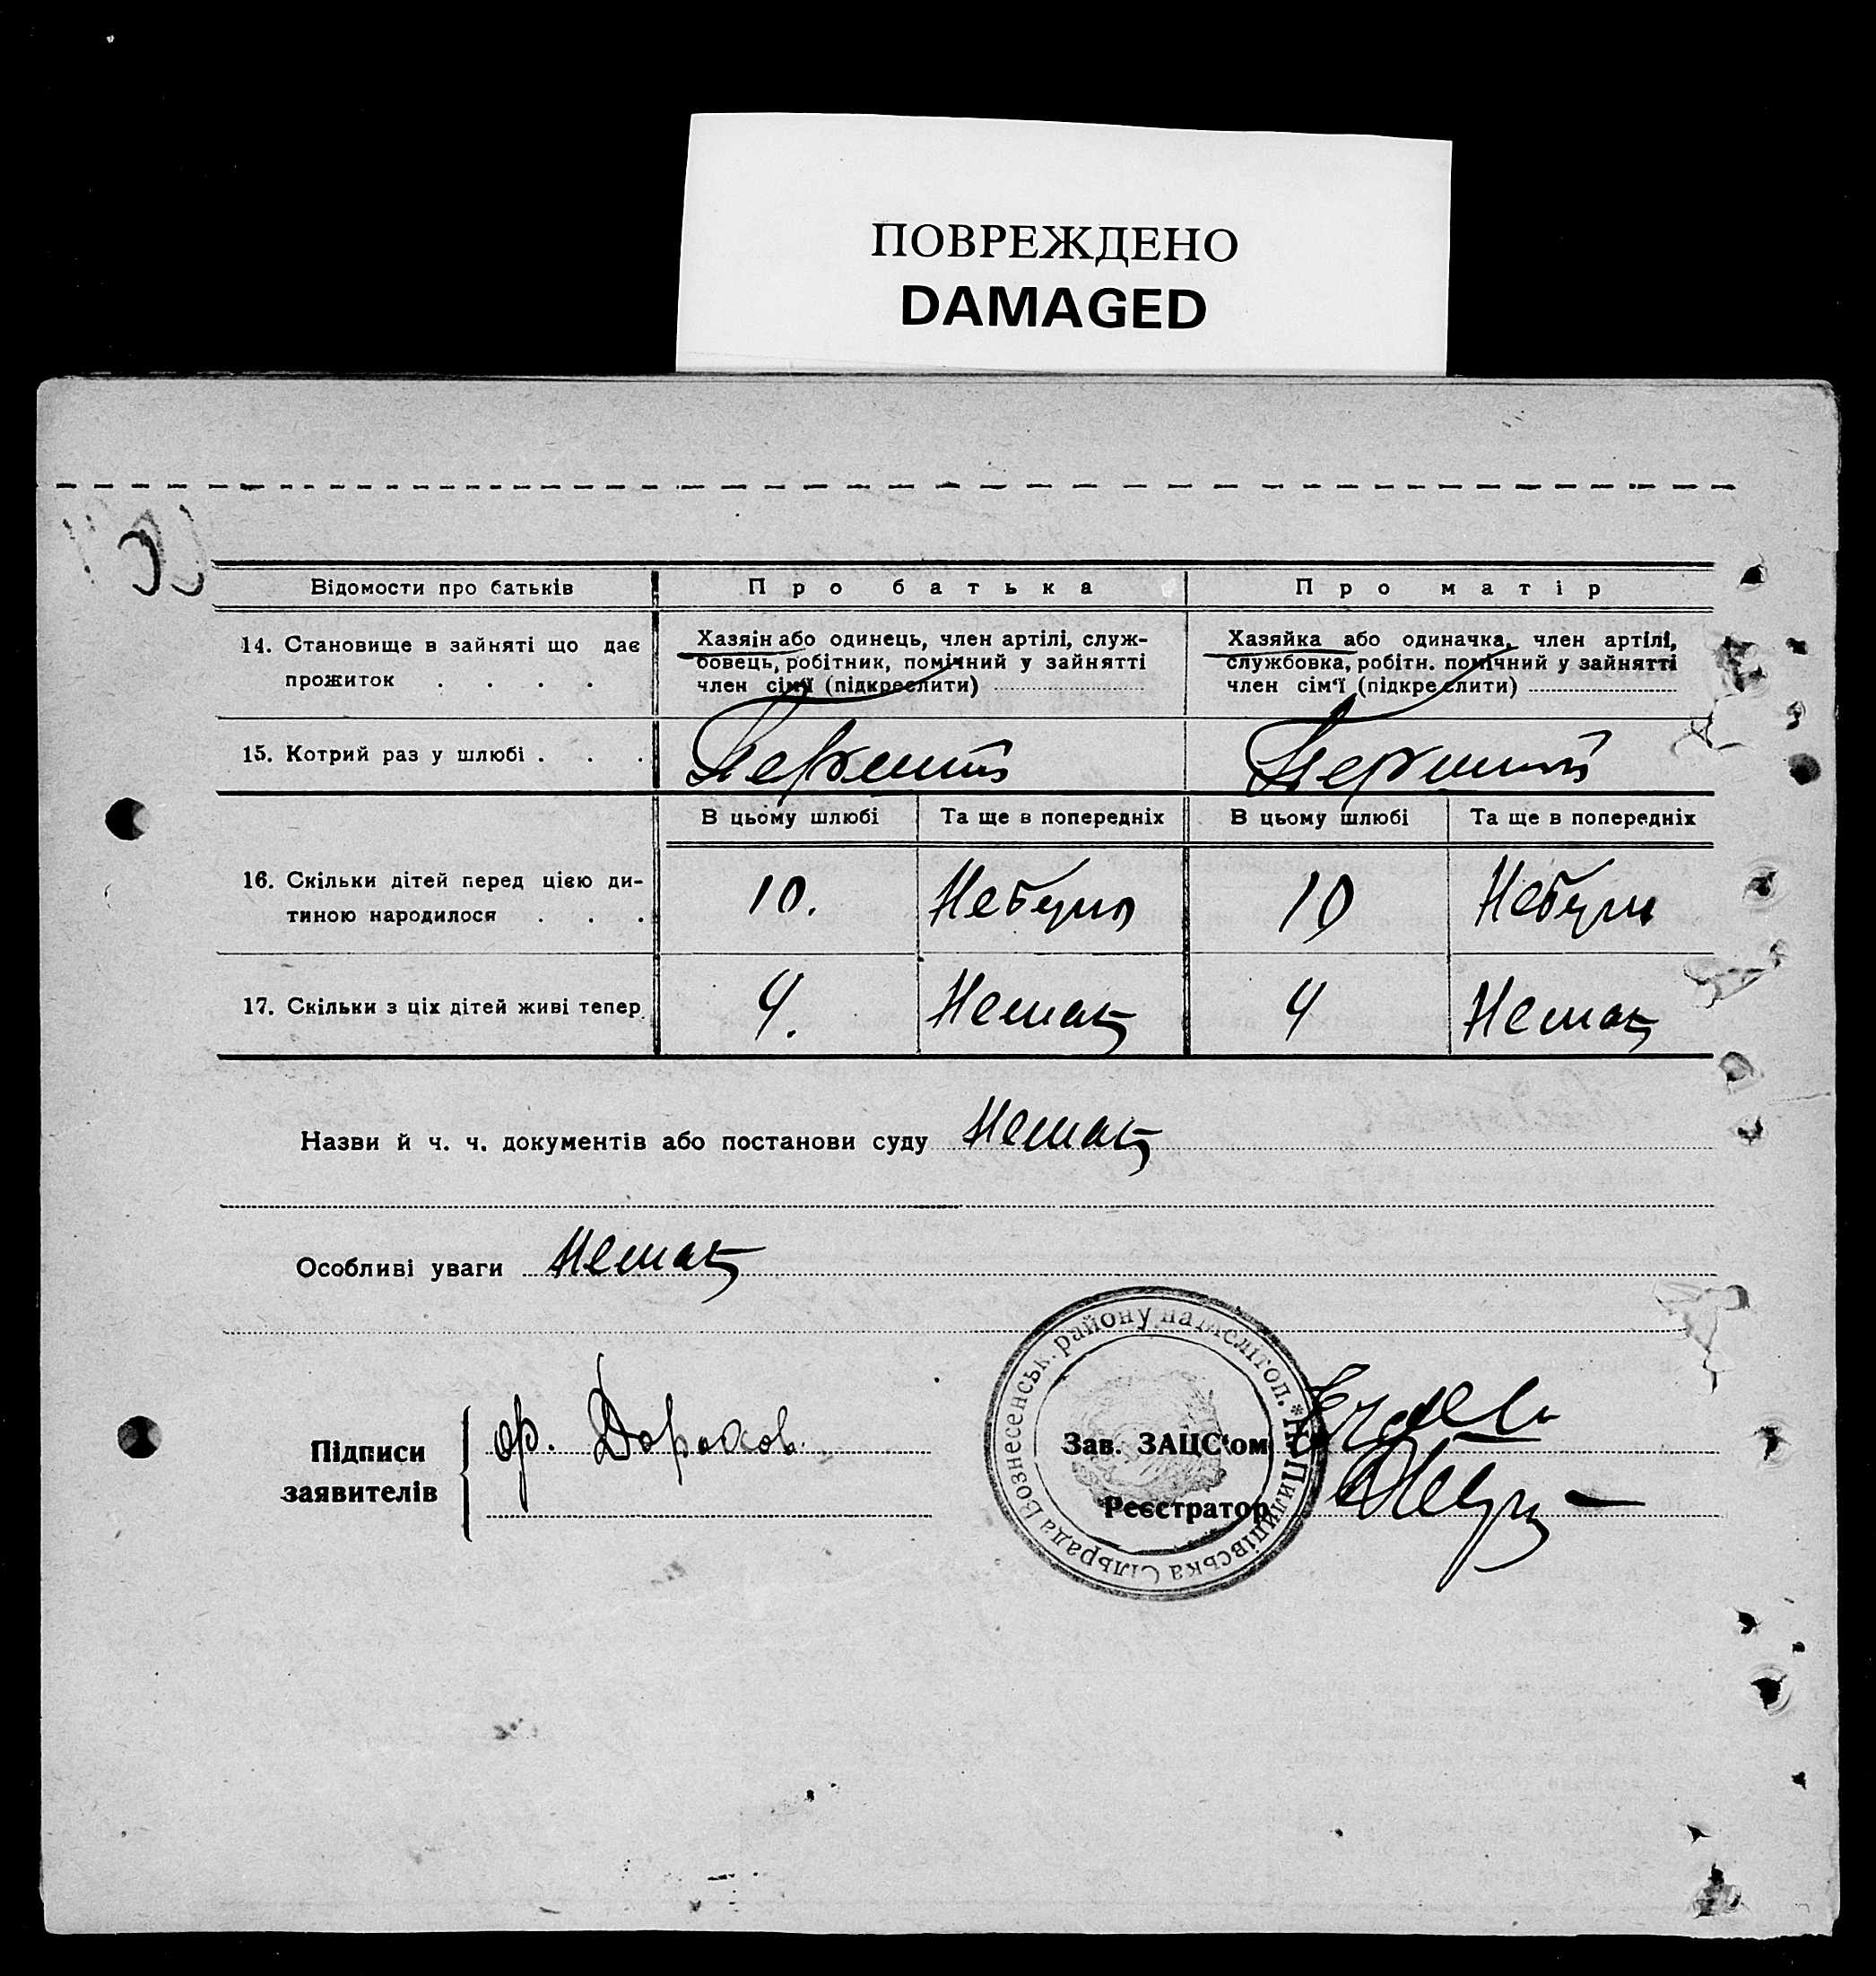 ПОВРЕЖДЕНО
DAMAGED
Відомости про батьків
Про батька
Про матір
14. Становище в зайняті що дає прожиток . . . .
Хазяін або одинець, член артілі, служ-
бовець, робітник, помічний у зайнятті
член сім'ї (підкреслити)
Хазяйка або одиначка, член артілі,
службовка, робітн. помічний у зайнятті
член сім'ї (підкреслити)
15. Котрий раз у шлюбі . . .
Первший
Перший
В цьому шлюбі
Та ще в попередніх
В цьому шлюбі
Та ще в попередніх
16. Скільки дітей перед цією ди-
тиною народилося . . .
10.
Небуло
10
Небули
17. Скільки з ціх дітей живі тепер
4.
Немає
4
Немає
Назви й ч. ч. документів або постанови суду Немає
Особливі уваги Немає
Підписи
заявителів
Зав. ЗАЦС'ом
Реєстратор
Пилипівська Сільрада Вознесенськ. району на Мелітоп.